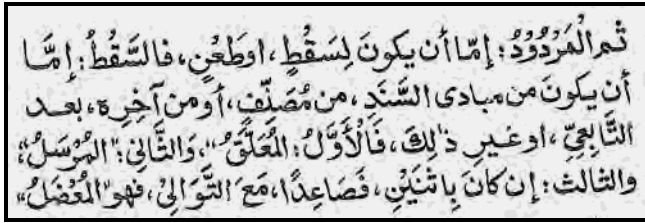 ثم الْمَرْدُوْدُ: إمّا أن يكونَ لِسَقْطٍ، اوطَعْنٍ، فالسَّقْطُ: إمَّا
أن يكونَ من مبادى السَّنَدِ، من مُصَنِّفٍ، أو من آخِرِهٖ، بعد
التَّابِعِيِّ، او غيرِ ذٰلِكَ، فَالْأَوَّلُ: المُعَلَّقُ"، وَالثَّانِيْ: "المُرْسَلُ"؛
والثالث: إن كانَ بِاثْنَيْنِ، فَصَاعِدًا، مَعَ التَّوَالِيْ، فهو "المُعْضَلُ"،